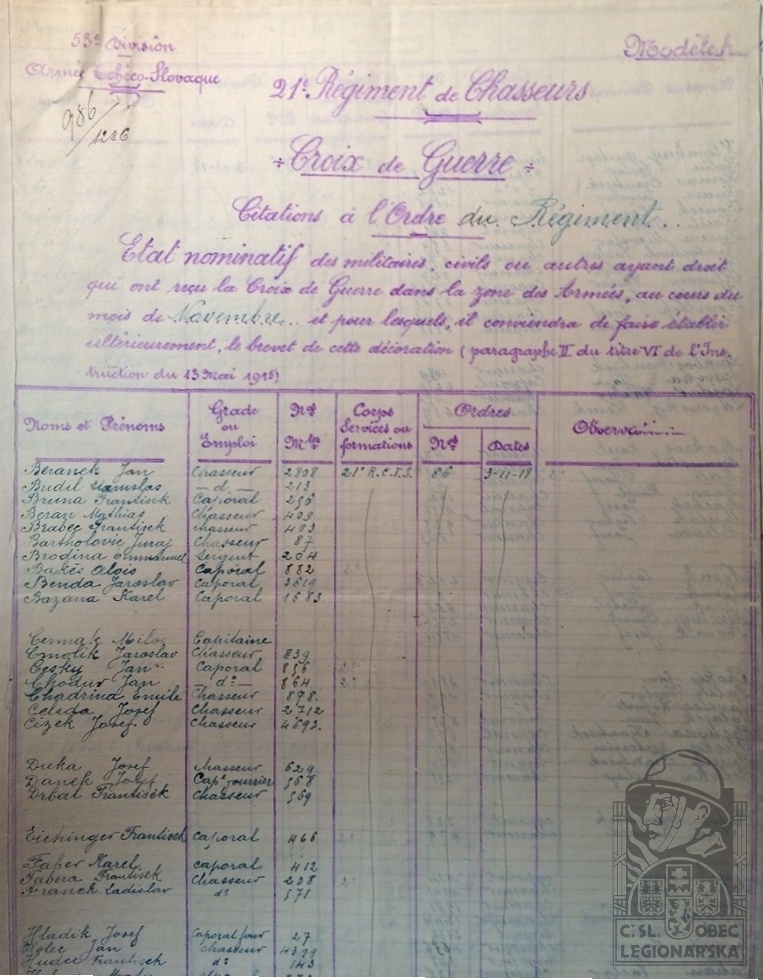 53e Division
Armée Tchéco-Slovaque
986/1286
Modèle h
21e Régiment de Chasseurs
Croix de Guerre
Citations à l'Ordre du Régiment
Etat nominatif des militaires, civils ou autres ayant droit
qui ont reçu la Croix de Guerre dans la zone des Armées, au cours du
mois de Novembre.. et pour lesquels, il conviendra de faire établir
ultérieurement, le brevet de cette décoration (paragraphe II du titre VI de l'Ins-
truction du 13 Mai 1915)
Noms et Prénoms Grade ou Emploi Nos Mles Corps Services ou formations Ordres Nos Dates
Beranek Jan Chasseur 2808 21e R.C.T.S. 86 3-11-18
Budil Stanislas — d — 213
Bruna Frantisek Caporal 256
Beran Mathias Chasseur 409
Brabec Frantisek Chasseur 403
Bartholovic Juraj Chasseur 87
Brodina Emmanuel Sergent 204
Bakes Alois Caporal 882
Benda Jaroslav Caporal 3619
Bazana Karel Caporal 1683
Cermak Milos Capitaine
Cmolik Jaroslav Chasseur 839
Cesky Jan Caporal 856
Chodur Jan — do — 864
Chadrina Emile Chasseur 878
Celeda Josef Chasseur 2712
Cizek Josef Chasseur 4693
Josef Chasseur 629
Danek Josef Capl fourrier 568
Drbal Frantisek Chasseur 569
Eichinger Frantisek Caporal 466
Faber Karel Caporal 412
Fabera Frantisek Chasseur 208
Franek Ladislav do 571
Hladik Josef Caporal four 27
Holec Jan Chasseur 4399
Hudec Frantisek do 143
ČSL. OBEC
LEGIONÁŘSKÁ